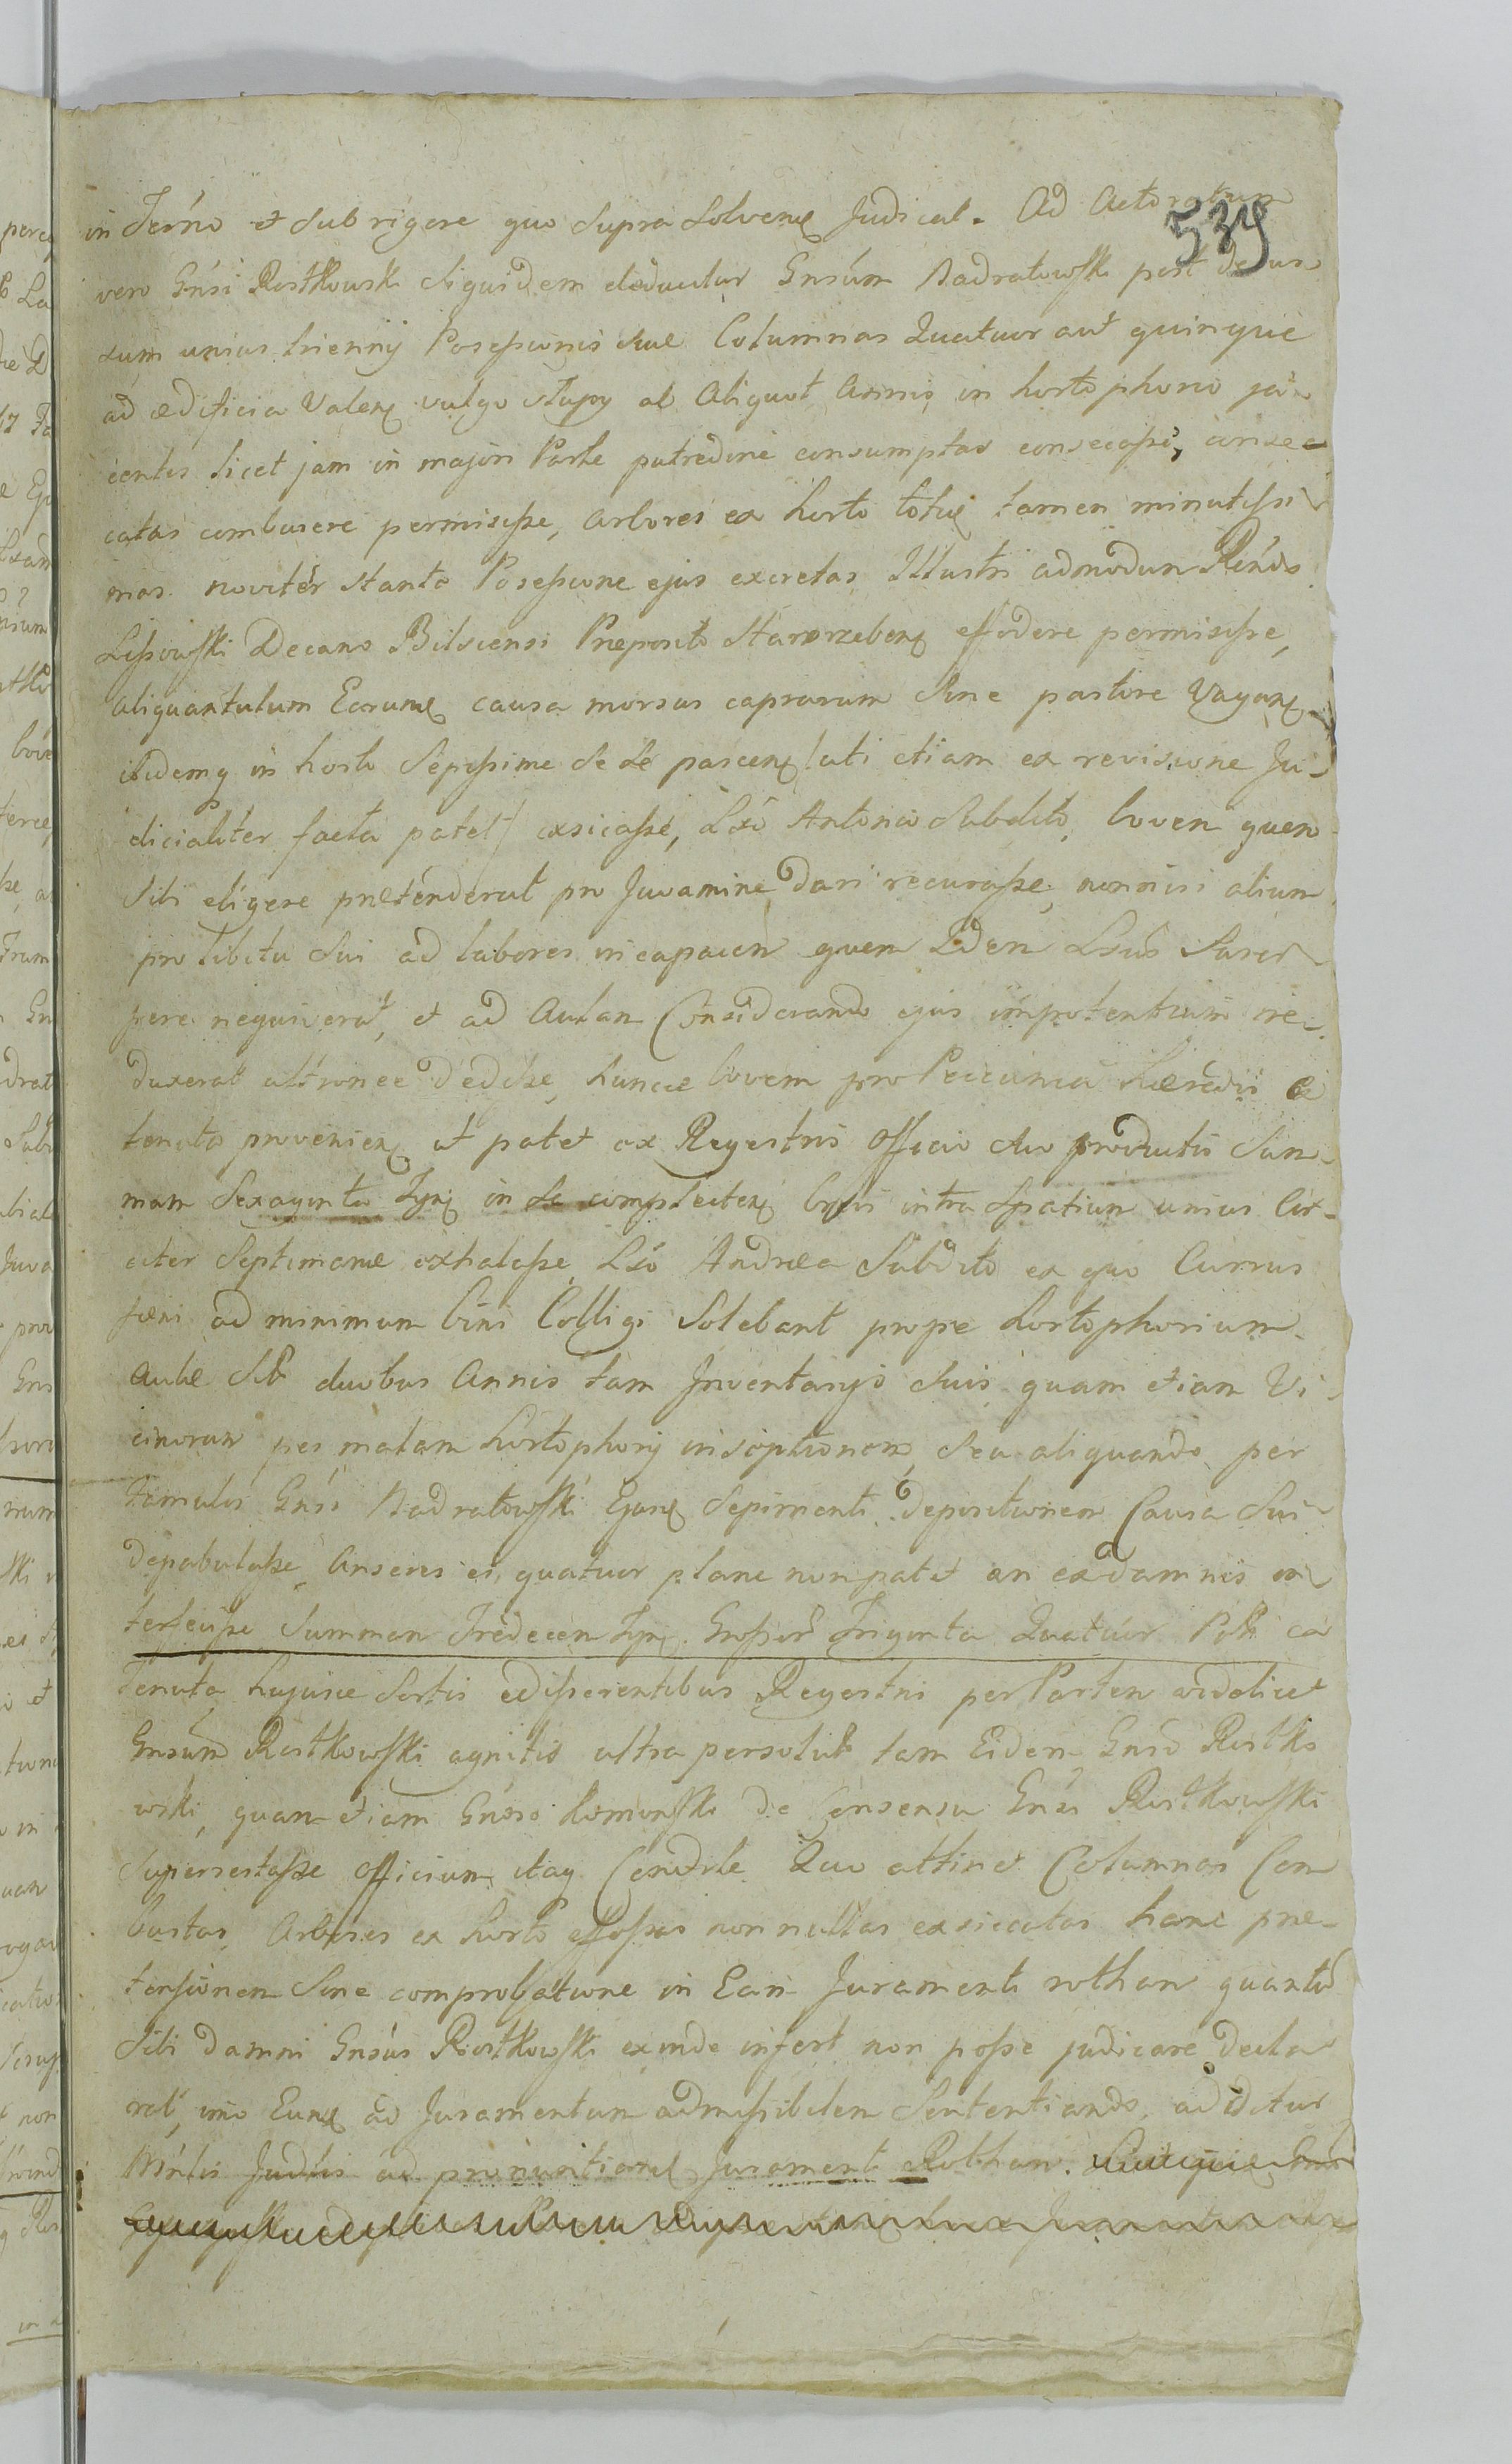 539
in Termo et sub rigore quo supra solvenđ Judicat. Ad Actoratum
vero Gnsi Rostkowski siquidem deducitur Gnsum Nadratowski post decur
sum unius triennÿ Possessionis suæ Columnas Quatuor aut quinque
ad ædificia Valenţ vulgo słupy ab aliquot Annis in hortophorio ja
centes licet jam in majori Parte putredine consumptas consecasse, consec
catas comburere permisisse, arbores ex horto totią tamen minutissi
mas noviter stante Possessione ejus excretas Illustri admodum Rendo
Lissowski Decano Bilscensi Præposito Starorzebenţ effodere permisisse,
aliquantulum Earunđ causa morsus caprarum sine pastore Vaganţ
ibidemq in horto Sepissime se se pascenţ /uti etiam ex revisione Ju
dicialiter facta patet/ exsicasse, Lso Antonio Subdito, bovem quem
sibi eligere prætenderat pro Juvamine dari recusasse, nonnisi alium
pro libitu sui ad labores incapacem quem Idem Lsus Suscip
pere nequiverat, et ad Aulam Considerando ejus impotentiam re
duxerat ultronee dedisse, huncce bovem pro Pecunia Hæredis e
tenuta provenienţ ut patet ex Regestris officio suo productis Sum
mam Sexaginta Tynf in se complectenţ intra Spatium unius Cir
citer Septimanæ exhalasse, Lso Andreæ Subdito ex quo Currus
fæni ad minimum bini Colligi Solebant prope hortophorium
Aulæ duobus Annis tam Inventarÿs suis quam etiam Vi
cinorum per malam hortophorÿ inseptionem, seu aliquando per
Famulos Gnsi Nadratowski Ejusđ Sepimenti depositionem Causa Sui
depabulasse, Anseres ei quatuor plane non patet an ex damnis in
terfecisse Summam Tredecem Tynf. Grossor Triginta Quatuor Post ea
Tenuta hujusce Sortis edisserentibus Regestris per Partem videlicet
Gnsum Rostkowski agnitis ultra persolut tam Eidem Gnso Rostko
wski, quam etiam Gnoso Komonski de Consensu Gnsi Rostkowski
Supererstasse officium itaq Condite Quo attinet Columnas Com
bustas, Arbores ex horto effossas non nullas exsiccatas hanc præ
tensionem Sine comprobatione in Eam Juramenti rotham quantum
Sibi damni Gnsus Rostkowski exinde infert non posse judicare decla
rat, imo Eunđ ad Juramentum admissibilem Sententiando, additur
Mntis Judlis ad pronuntianđ Juramenti Rotham.